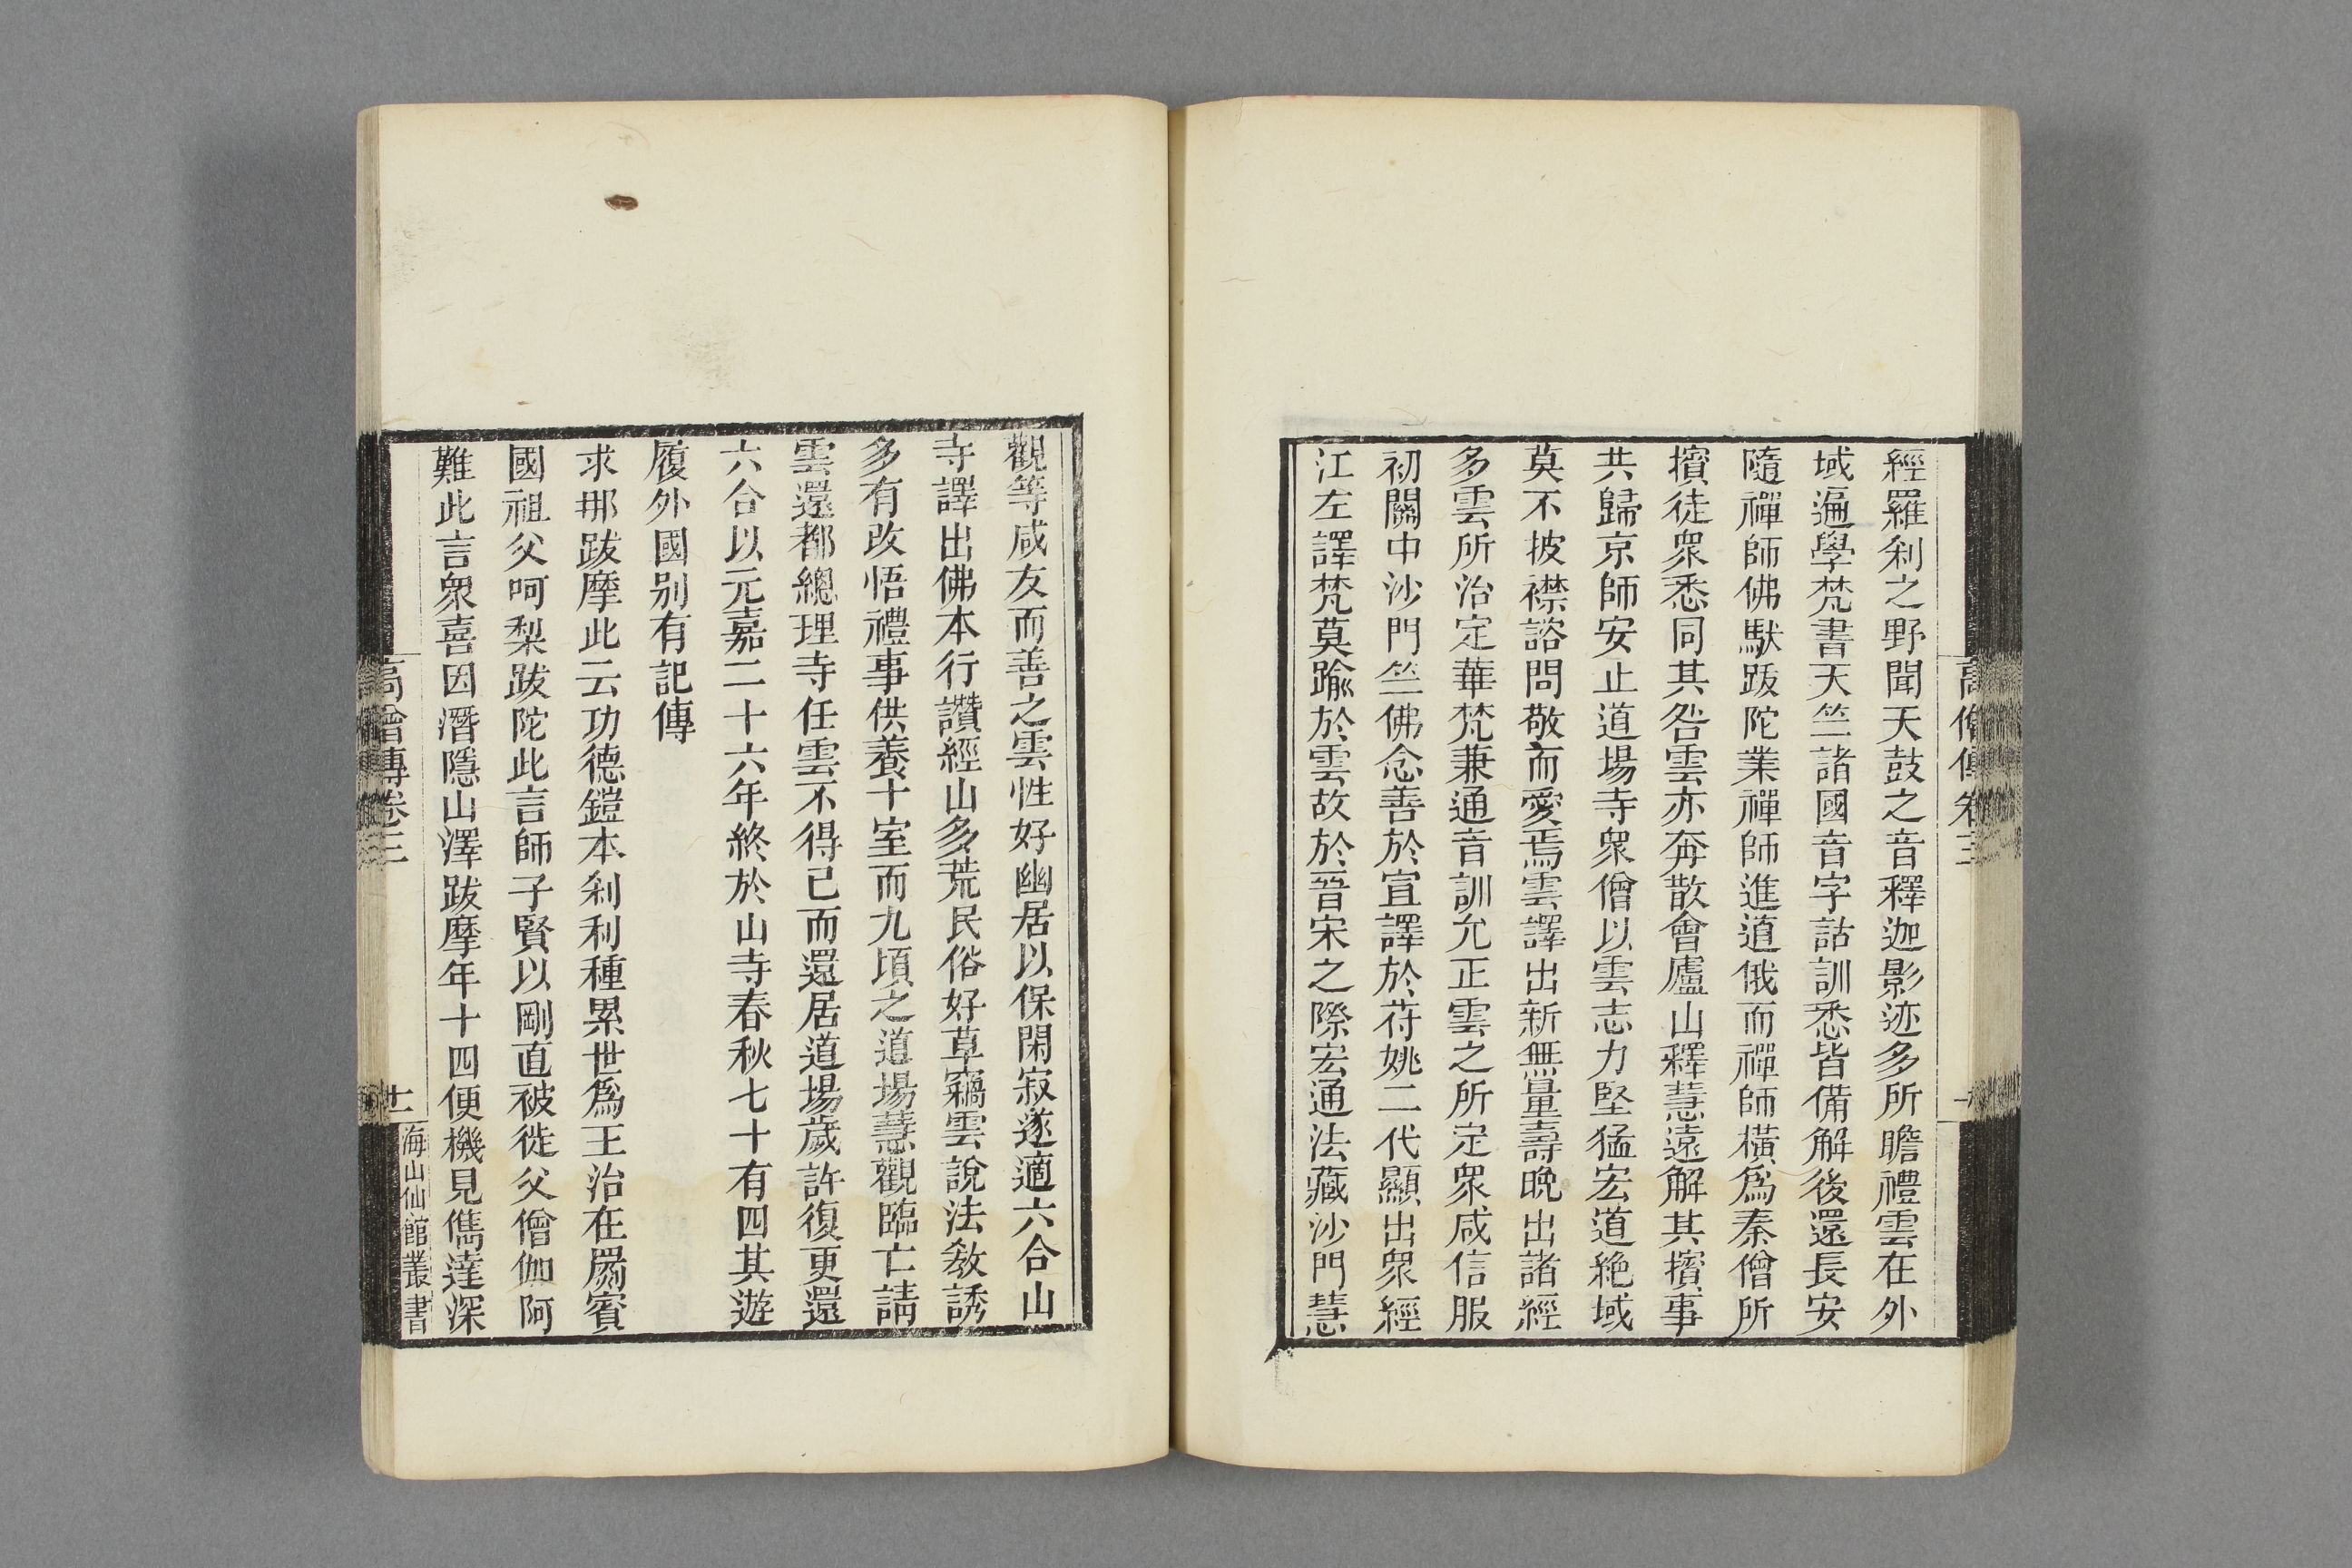 經羅刹之野聞天鼓之音釋迦影迹多所瞻禮雲在外
域遍學梵書天竺諸國音字詁訓悉皆備解後還長安
隨禪師佛馱跋陀業禪師進道俄而禪師橫爲秦僧所
擯徒衆悉同其咎雲亦奔散會廬山釋慧遠解其擯事
共歸京師安止道場寺衆僧以雲志力堅猛宏道絶域
莫不披襟諮問敬而愛焉雲譯出新無量壽晚出諸經
多雲所治定華梵兼通音訓允正雲之所定衆咸信服
初關中沙門竺佛念善於宣譯於苻姚二代顯出衆經
江左譯梵莫踰於雲故於晉宋之際宏通法藏沙門慧
高僧傳卷三
觀等咸友而善之雲性好幽居以保閑寂遂適六合山
寺譯出佛本行讚經山多荒民俗好草竊雲說法敎誘
多有改悟禮事供養十室而九頃之道場慧觀臨亡請
雲還都總理寺任雲不得已而還居道場歲許復更還
六合以元嘉二十六年終於山寺春秋七十有四其遊
履外國别有記傳
求那跋摩此云功德鎧本刹利種累世爲王治在罽賓
國祖父呵梨跋陀此言師子賢以剛直被徙父僧伽阿
難此言衆喜因潛隱山澤跋摩年十四便機見儁達深
高僧傳卷三
十一
海山仙館叢書